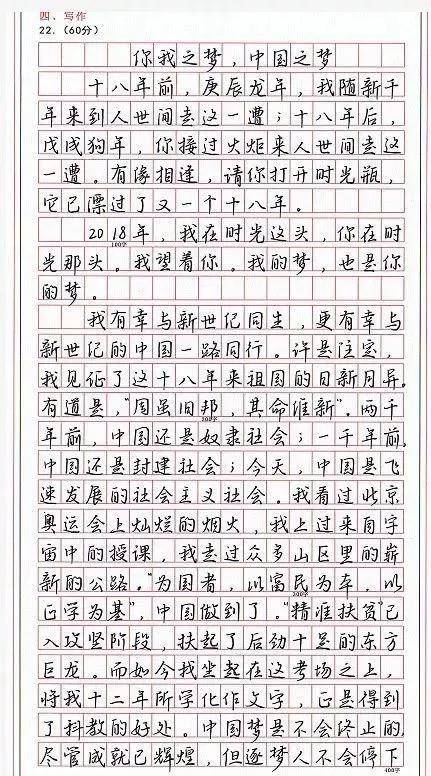 四、写作
22.（60分）
你我之梦，中国之梦
十八年前，庚辰龙年，我随新千
年来到人世间走这一遭；十八年后，
戊戌狗年，你接过火炬来人世间走这
一遭。有缘相逢，请你打开时光瓶，
它已漂过了又一个十八年。
2018年，我在时光这头，你在时
100字
光那头。我望着你。我的梦，也是你
的梦。
我有幸与新世纪同生，更有幸与
新世纪的中国一路同行。许是注定，
我见证了这十八年来祖国的日新月异。
有道是，“周虽旧邦，其命维新”。两千
200字
年前，中国还是奴隶社会；一千年前，
中国还是封建社会；今天，中国是飞
速发展的社会主义社会。我看过北京
奥运会上灿烂的烟火，我上过来自宇
宙中的授课，我走过众多山区里的崭
新的公路。“为国者，以富民为本，以
正学为基”，中国做到了。“精准扶贫”已
300字
入攻坚阶段，扶起了后劲十足的东方
巨龙。而如今我坐在这考场之上，
将我十二年所学化作文字，正是得到
了科教的好处。中国梦是不会终止的，
尽管成就已辉煌，但逐梦人不会停下
400字